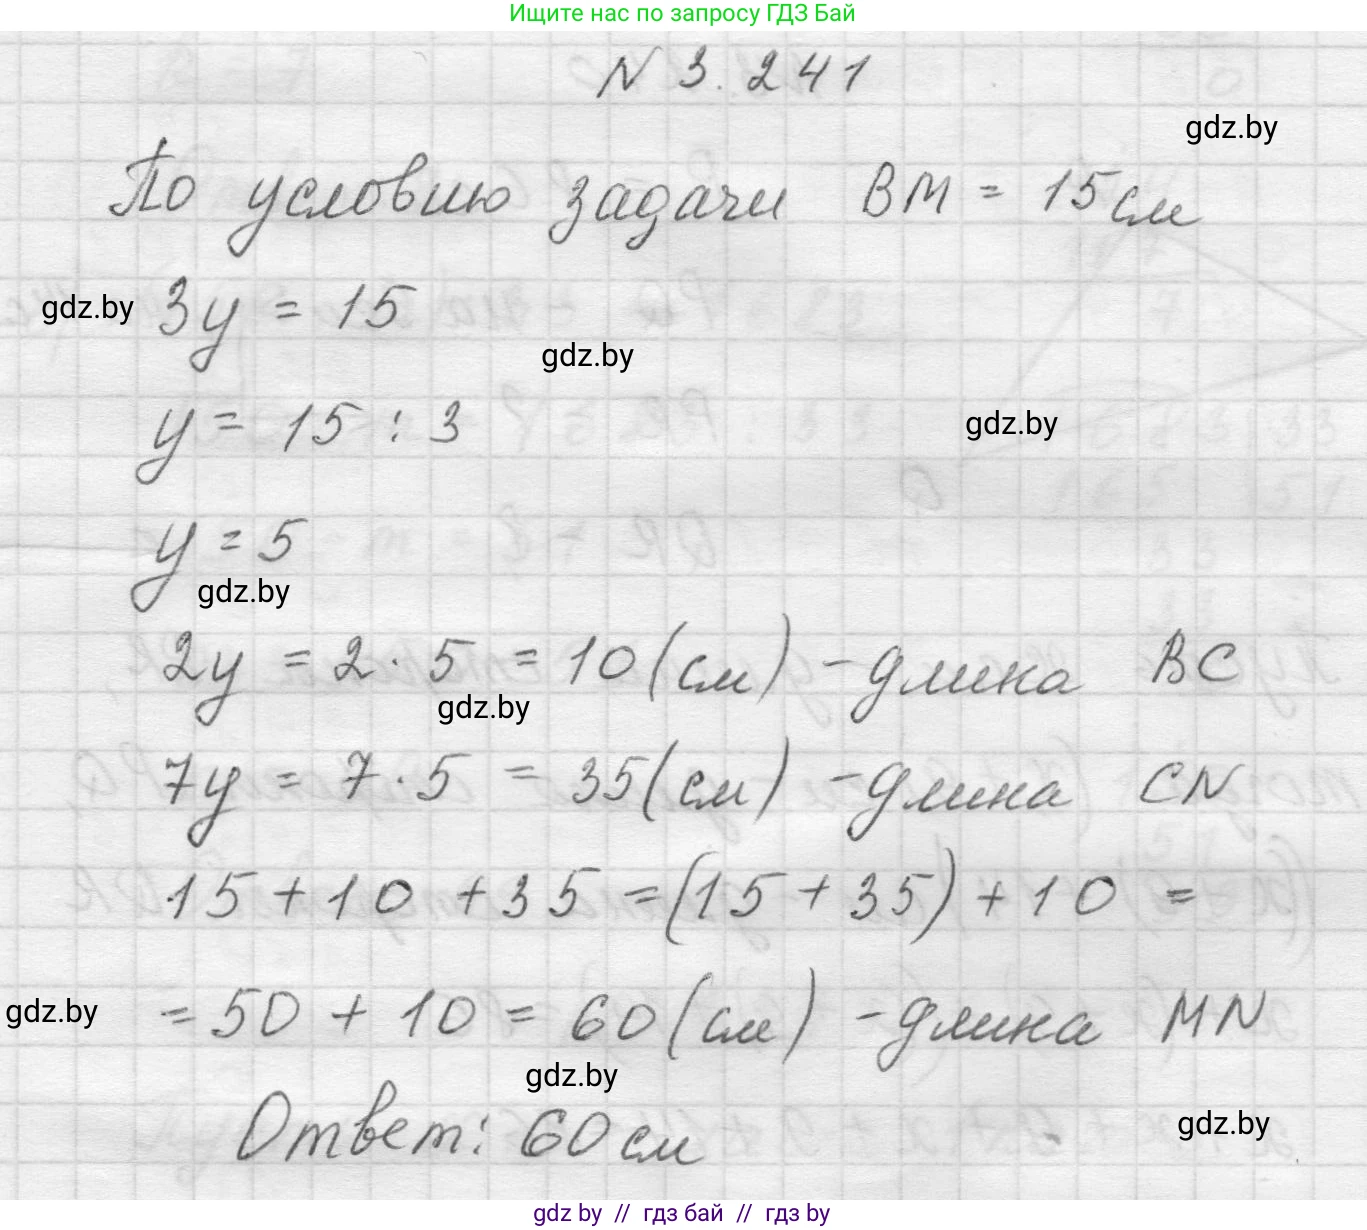 Ищите нас по запросу ГДЗ Бай
N 3.241
gdz.by
По условию задачи BM = 15 см
gdz.by 3y = 15
gdz.by
y = 15 : 3
gdz.by
y = 5
gdz.by
2y = 2 · 5 = 10 (см) - длина BC
gdz.by
7y = 7 · 5 = 35 (см) - длина CN
15 + 10 + 35 = (15 + 35) + 10 =
gdz.by = 50 + 10 = 60 (см) - длина MN
gdz.by
Ответ: 60 см
gdz.by
gdz by // гдз бай // гдз by